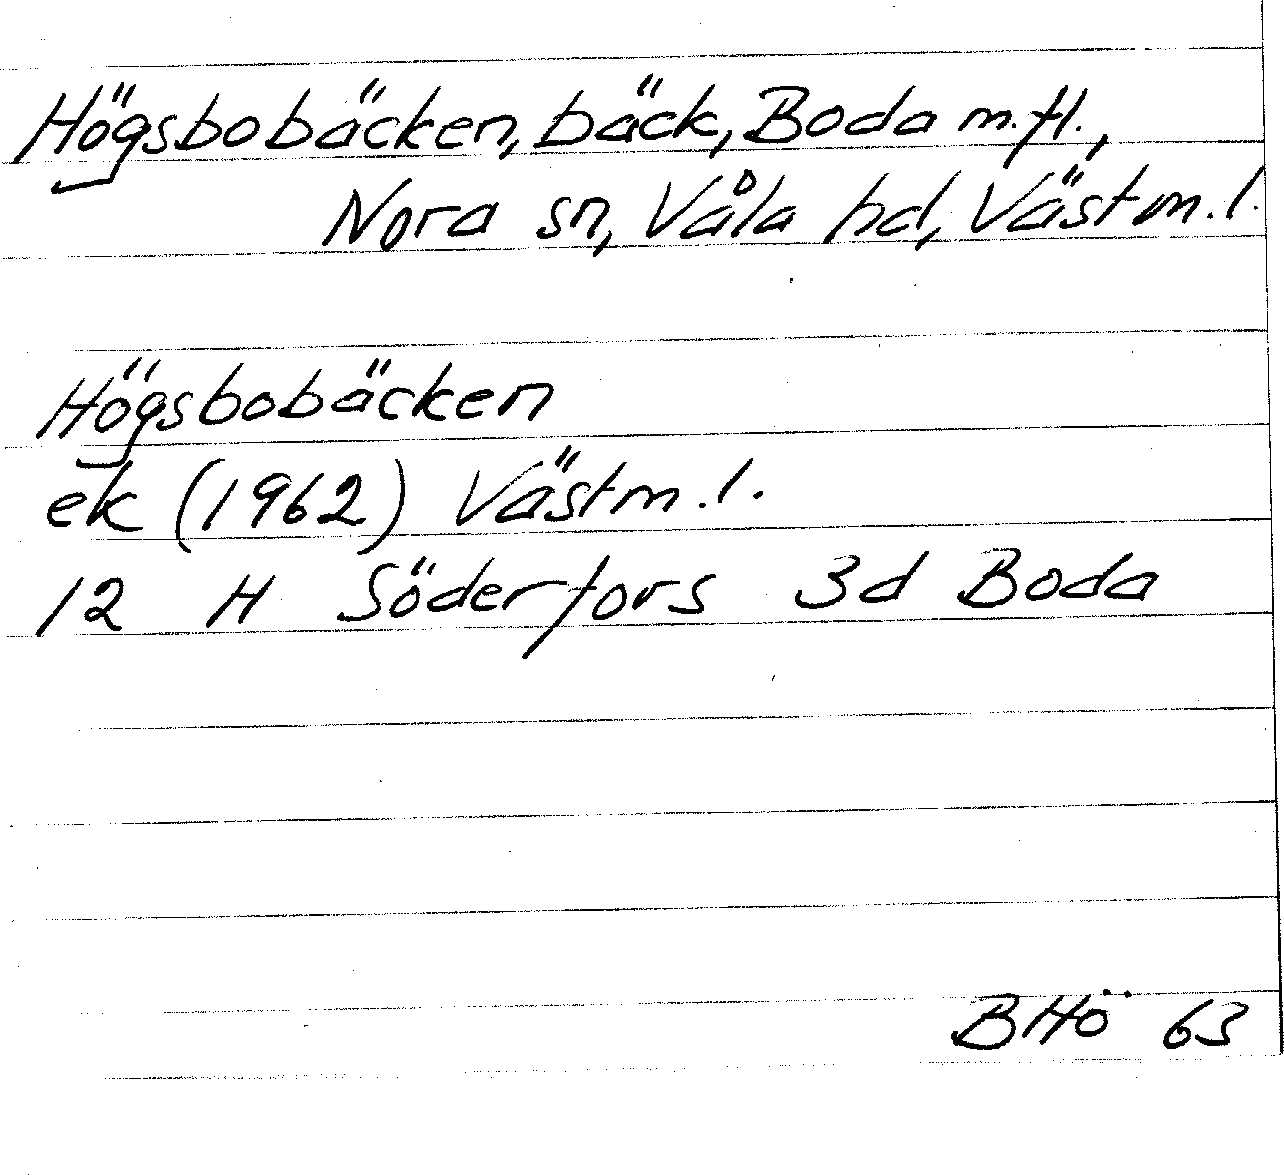 Högsbobäcken, bäck, Boda m.fl.,
Nora sn, Våla hd, Västm.l.
Högsbobäcken
ek (1962) Västm.l.
12 H Söderfors 3d Boda
BHö 63